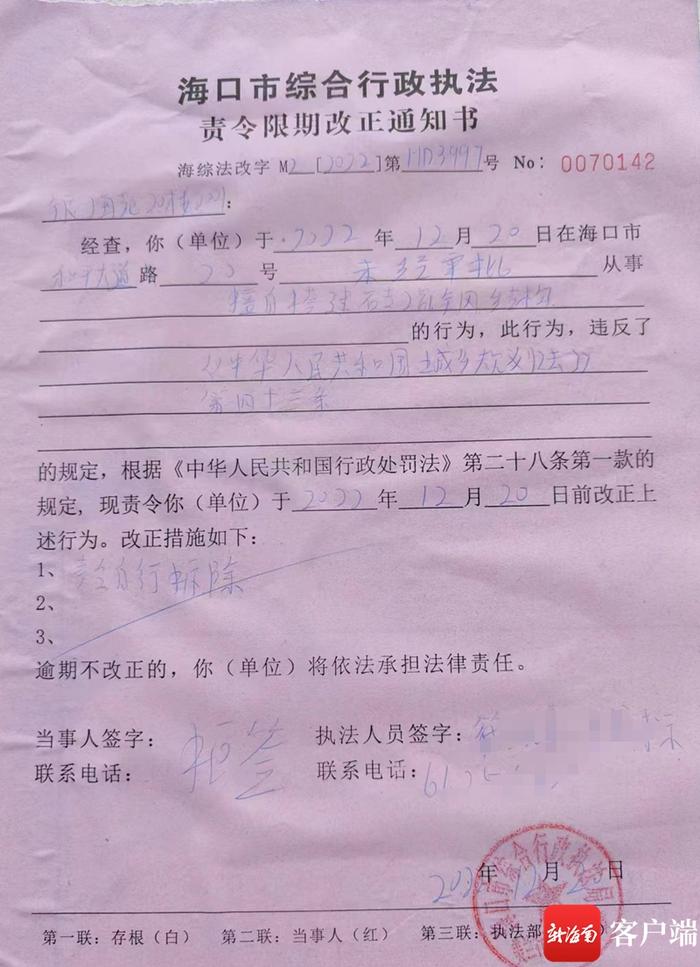 海口市综合行政执法
责令限期改正通知书
海综法改字 M2 [2022]第 HD3997 号 No: 0070142
20栋201:
经查，你（单位）于 2022 年 12 月 20 日在海口市
和平大道 路 20 号 未经审批 从事
擅自搭建
的行为，此行为，违反了
《中华人民共和国城乡规划法》
第四十三条
的规定，根据《中华人民共和国行政处罚法》第二十八条第一款的
规定，现责令你（单位）于 2022 年 12 月 20 日前改正上
述行为。改正措施如下：
1、责令自行拆除
2、
3、
逾期不改正的，你（单位）将依法承担法律责任。
当事人签字： 拒签 执法人员签字：
联系电话： 联系电话：
2022 年 12 月 20 日
海口市综合行政执法局
第一联：存根（白） 第二联：当事人（红） 第三联：执法部
新海南 客户端